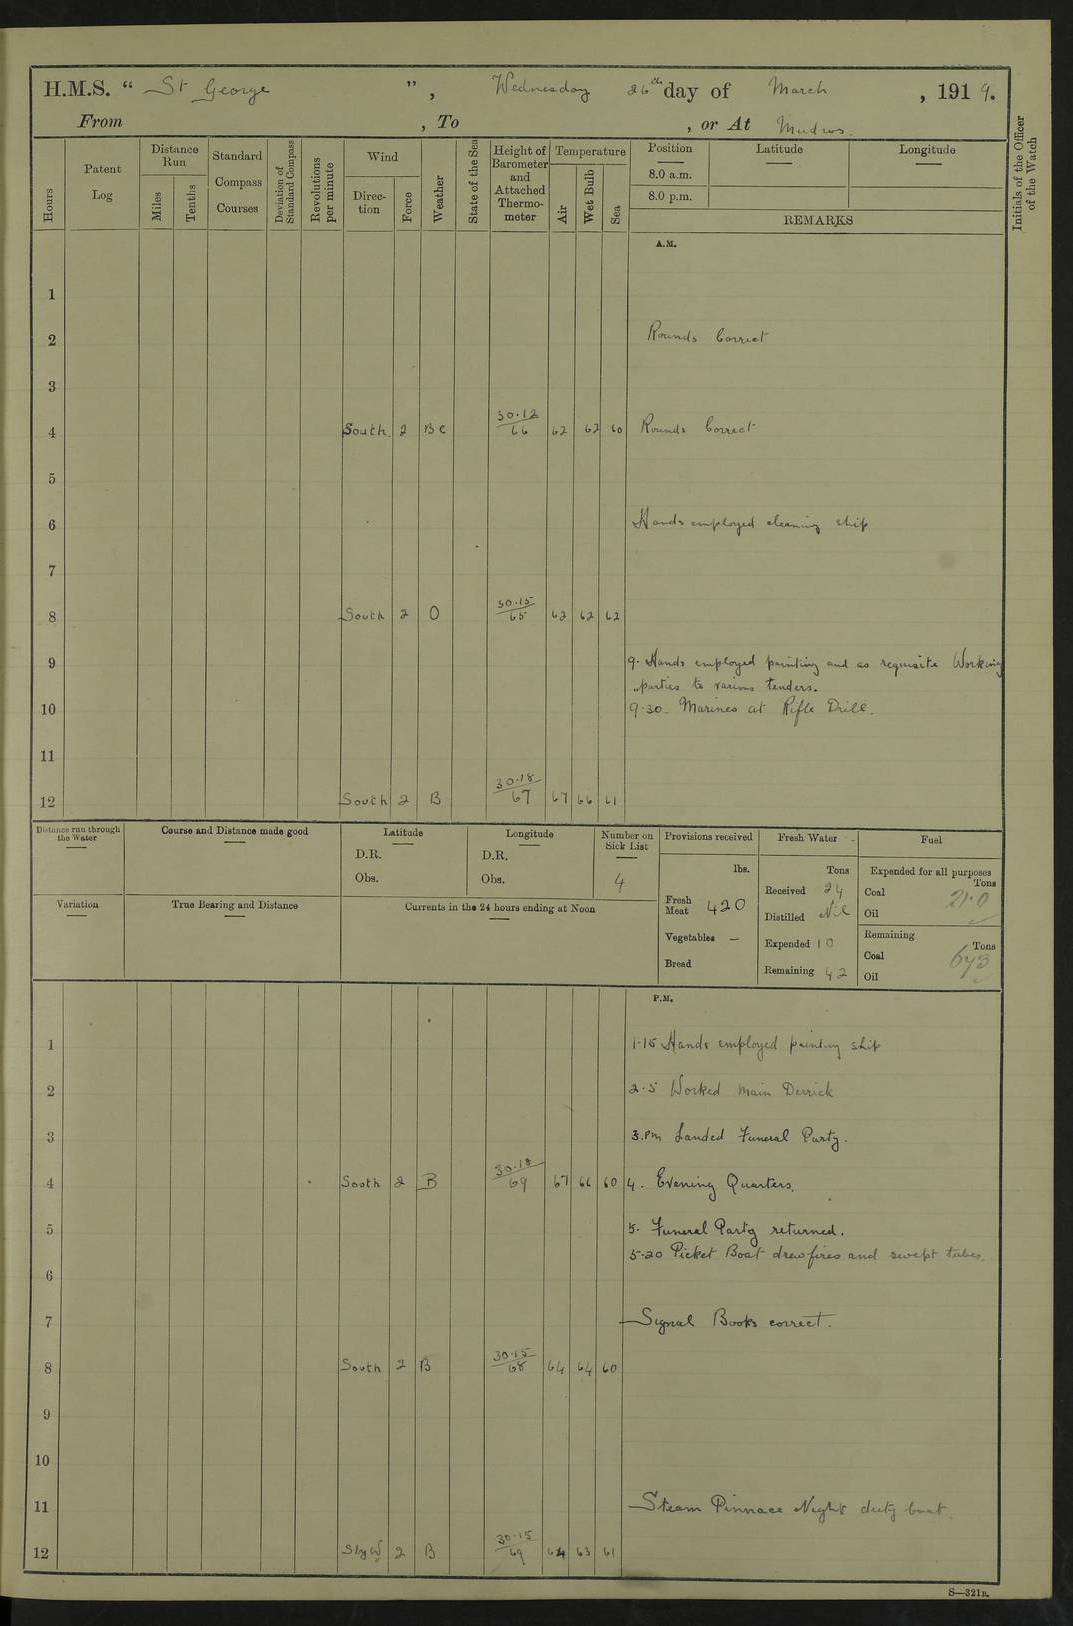 H.M.S. " St George ", Wednesday 26th day of March , 1919.
From , To , or At Mudros.
Hours
Patent Log
Distance Run
Miles
Tenths
Standard Compass Courses
Deviation of Standard Compass
Revolutions per minute
Wind
Direction
Force
Weather
State of the Sea
Height of Barometer and Attached Thermometer
Temperature
Air
Wet Bulb
Sea
Position
8.0 a.m.
8.0 p.m.
Latitude
Longitude
REMARKS
Initials of the Officer of the Watch
A.M.
1
2 Rounds Correct
3
4 South 2 BC 30.12/66 62 62 60 Rounds Correct
5
6 Hands employed cleaning ship
7
8 South 2 O 30.15/65 62 62 62
9 9. Hands employed painting and as requisite Working
parties to various tenders.
10 9.30. Marines at Rifle Drill.
11
12 South 2 B 30.18/67 67 66 61
Distance run through the Water
Course and Distance made good
Latitude
D.R.
Obs.
Longitude
D.R.
Obs.
Number on Sick List
4
Provisions received
lbs.
Fresh Meat 420
Vegetables —
Bread
Fresh Water
Tons
Received 24
Distilled Nil
Expended 10
Remaining 42
Fuel
Expended for all purposes
Tons
Coal 21.0
Oil
Remaining
Tons
Coal 673
Oil
Variation
True Bearing and Distance
Currents in the 24 hours ending at Noon
P.M.
1 1.15 Hands employed painting ship
2 2.5 Worked main Derrick
3 3.pm Landed Funeral Party.
4 South 2 B 30.18/69 67 66 60 4. Evening Quarters.
5 5. Funeral Party returned.
5.20 Picket Boat drew fires and swept tubes.
6
7 Signal Books correct.
8 South 2 B 30.15/68 64 64 60
9
10
11 Steam Pinnace Night duty boat.
12 SbyW 2 B 30.15/69 64 63 61
S—321B.